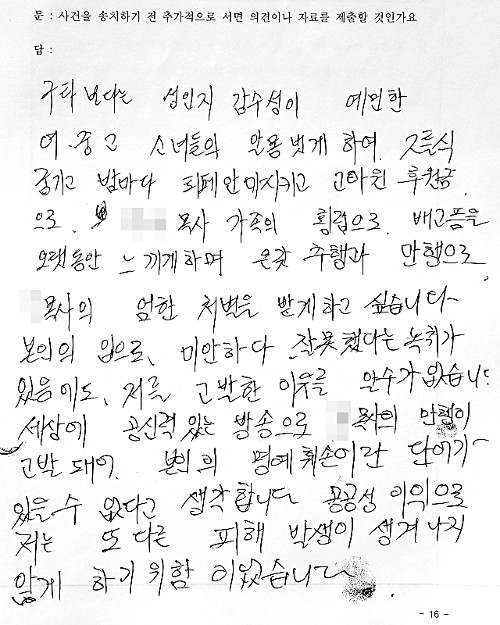 문 : 사건을 송치하기 전 추가적으로 서면 의견이나 자료를 제출할 것인가요
답 :
구타 보다는 성인지 감수성이 예민한
여.중고 소녀들의 알몸 벗게 하여.
굶기고 밤마다 고아원 후원금
으로. 목사 가족의 횡렴으로. 배고픔을
오랫동안 느끼게하며 온갖 추행과 만행으로
목사의 엄한 처벌을 받게하고 싶습니다
본인의 입으로, 미안하다 잘못했다는 녹취가
있음에도, 저를 고발한 이유를 알수가 없습니다
세상에 공신력 있는 방송으로 목사의 만행이
고발 돼어. 본인의 명예훼손이란 단어가
있을수 없다고 생각합니다 공공성 이익으로
저는 또 다른 피해 발생이 생겨나지
않게 하기위함 이었습니다.
- 16 -